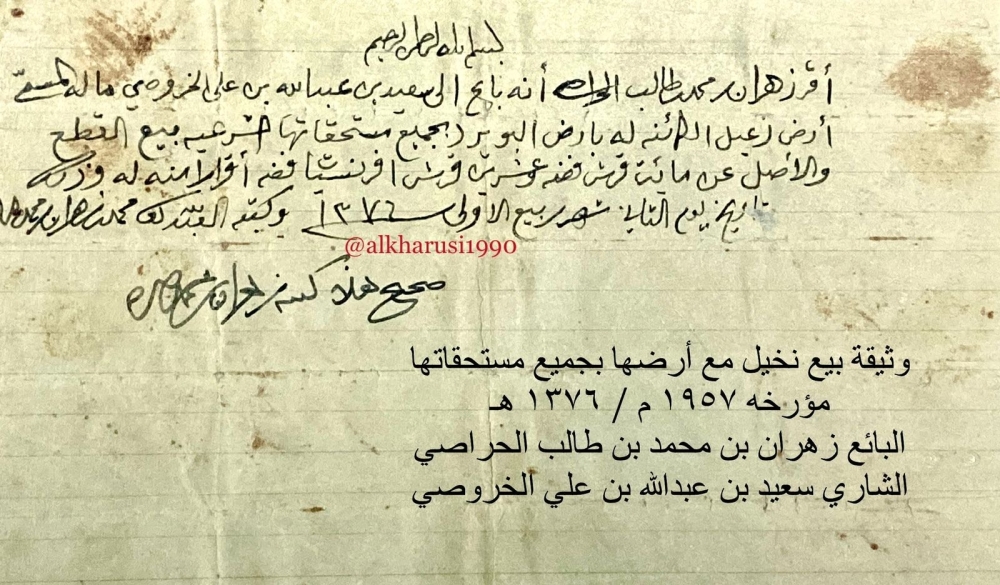 بسم الله الرحمن الرحيم
أقر زهران بن محمد بن طالب الحراصي أنه بايع الى سعيد بن عبدالله بن علي الخروصي ماله المسمى
أرض زعيل الكائنه له بارض البويرد بجميع مستحقاتها الشرعيه بيع القطع
والأصل عن مائتين قرش فضه وعشرين قرش افرنسيا فضه أقرارا منه له وذلك
تاريخ يوم الثاني شهر ربيع الاولى سنة ١٣٧٦ وكتبه محمد بن زهران بن محمد
@alkharusi1990
صحيح هذا كتبه زهران بن محمد
وثيقة بيع نخيل مع أرضها بجميع مستحقاتها
مؤرخه ١٩٥٧ م / ١٣٧٦ هـ
البائع زهران بن محمد بن طالب الحراصي
الشاري سعيد بن عبدالله بن علي الخروصي